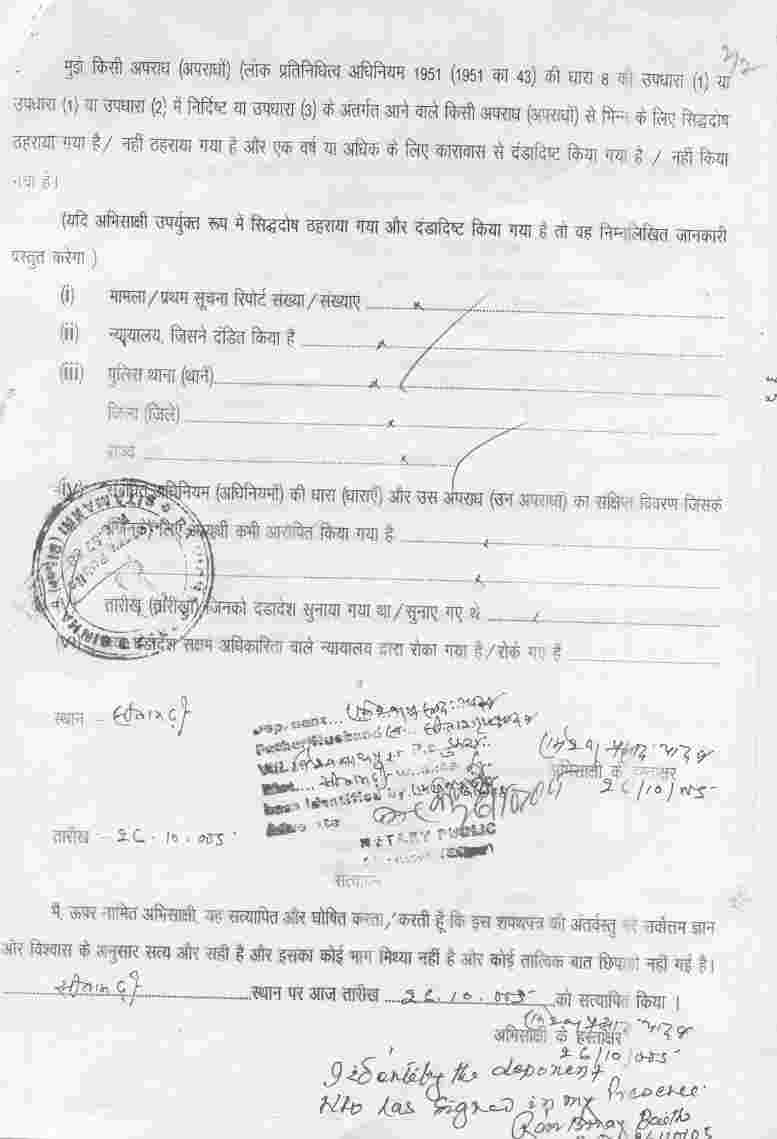 2/2
मुझे किसी अपराध (अपराधों) (लोक प्रतिनिधित्व अधिनियम 1951 (1951 का 43) की धारा 8 की उपधारा (1) या
उपधारा (1) या उपधारा (2) में निर्दिष्ट या उपधारा (3) के अंतर्गत आने वाले किसी अपराध (अपराधों) से भिन्न के लिए सिद्धदोष
ठहराया गया है / नहीं ठहराया गया है और एक वर्ष या अधिक के लिए कारावास से दंडादिष्ट किया गया है / नहीं किया
गया है।
(यदि अभिसाक्षी उपर्युक्त रूप में सिद्धदोष ठहराया गया और दंडादिष्ट किया गया है तो वह निम्नलिखित जानकारी
प्रस्तुत करेगा )
(i) मामला / प्रथम सूचना रिपोर्ट संख्या / संख्याए
(ii) न्यायालय, जिसने दंडित किया है
(iii) पुलिस थाना (थाने)
जिला (जिले)
राज्य
(iv) अधिनियम (अधिनियमों) की धारा (धाराएँ) और उस अपराध (उन अपराधों) का संक्षिप्त विवरण जिसके
लिए कभी आरोपित किया गया है
तारीख (तारीखें) जिनको दंडादेश सुनाया गया था / सुनाए गए थे
दंडादेश सक्षम अधिकारिता वाले न्यायालय द्वारा रोका गया है / रोके गए है
स्थान - सीतामढ़ी
अभिसाक्षी के हस्ताक्षर
26/10/005
तारीख - 26.10.005
NOTARY PUBLIC
सत्यापन
मैं, ऊपर नामित अभिसाक्षी, यह सत्यापित और घोषित करता / करती हूँ कि इस शपथपत्र की अंतर्वस्तु मेरे सर्वोत्तम ज्ञान
और विश्वास के अनुसार सत्य और सही है और इसका कोई भाग मिथ्या नहीं है और कोई तात्विक बात छिपायी नहीं गई है।
सीतामढ़ी स्थान पर आज तारीख 26.10.005 को सत्यापित किया ।
अभिसाक्षी के हस्ताक्षर
26/10/005
the deponent
who has signed in my presence.